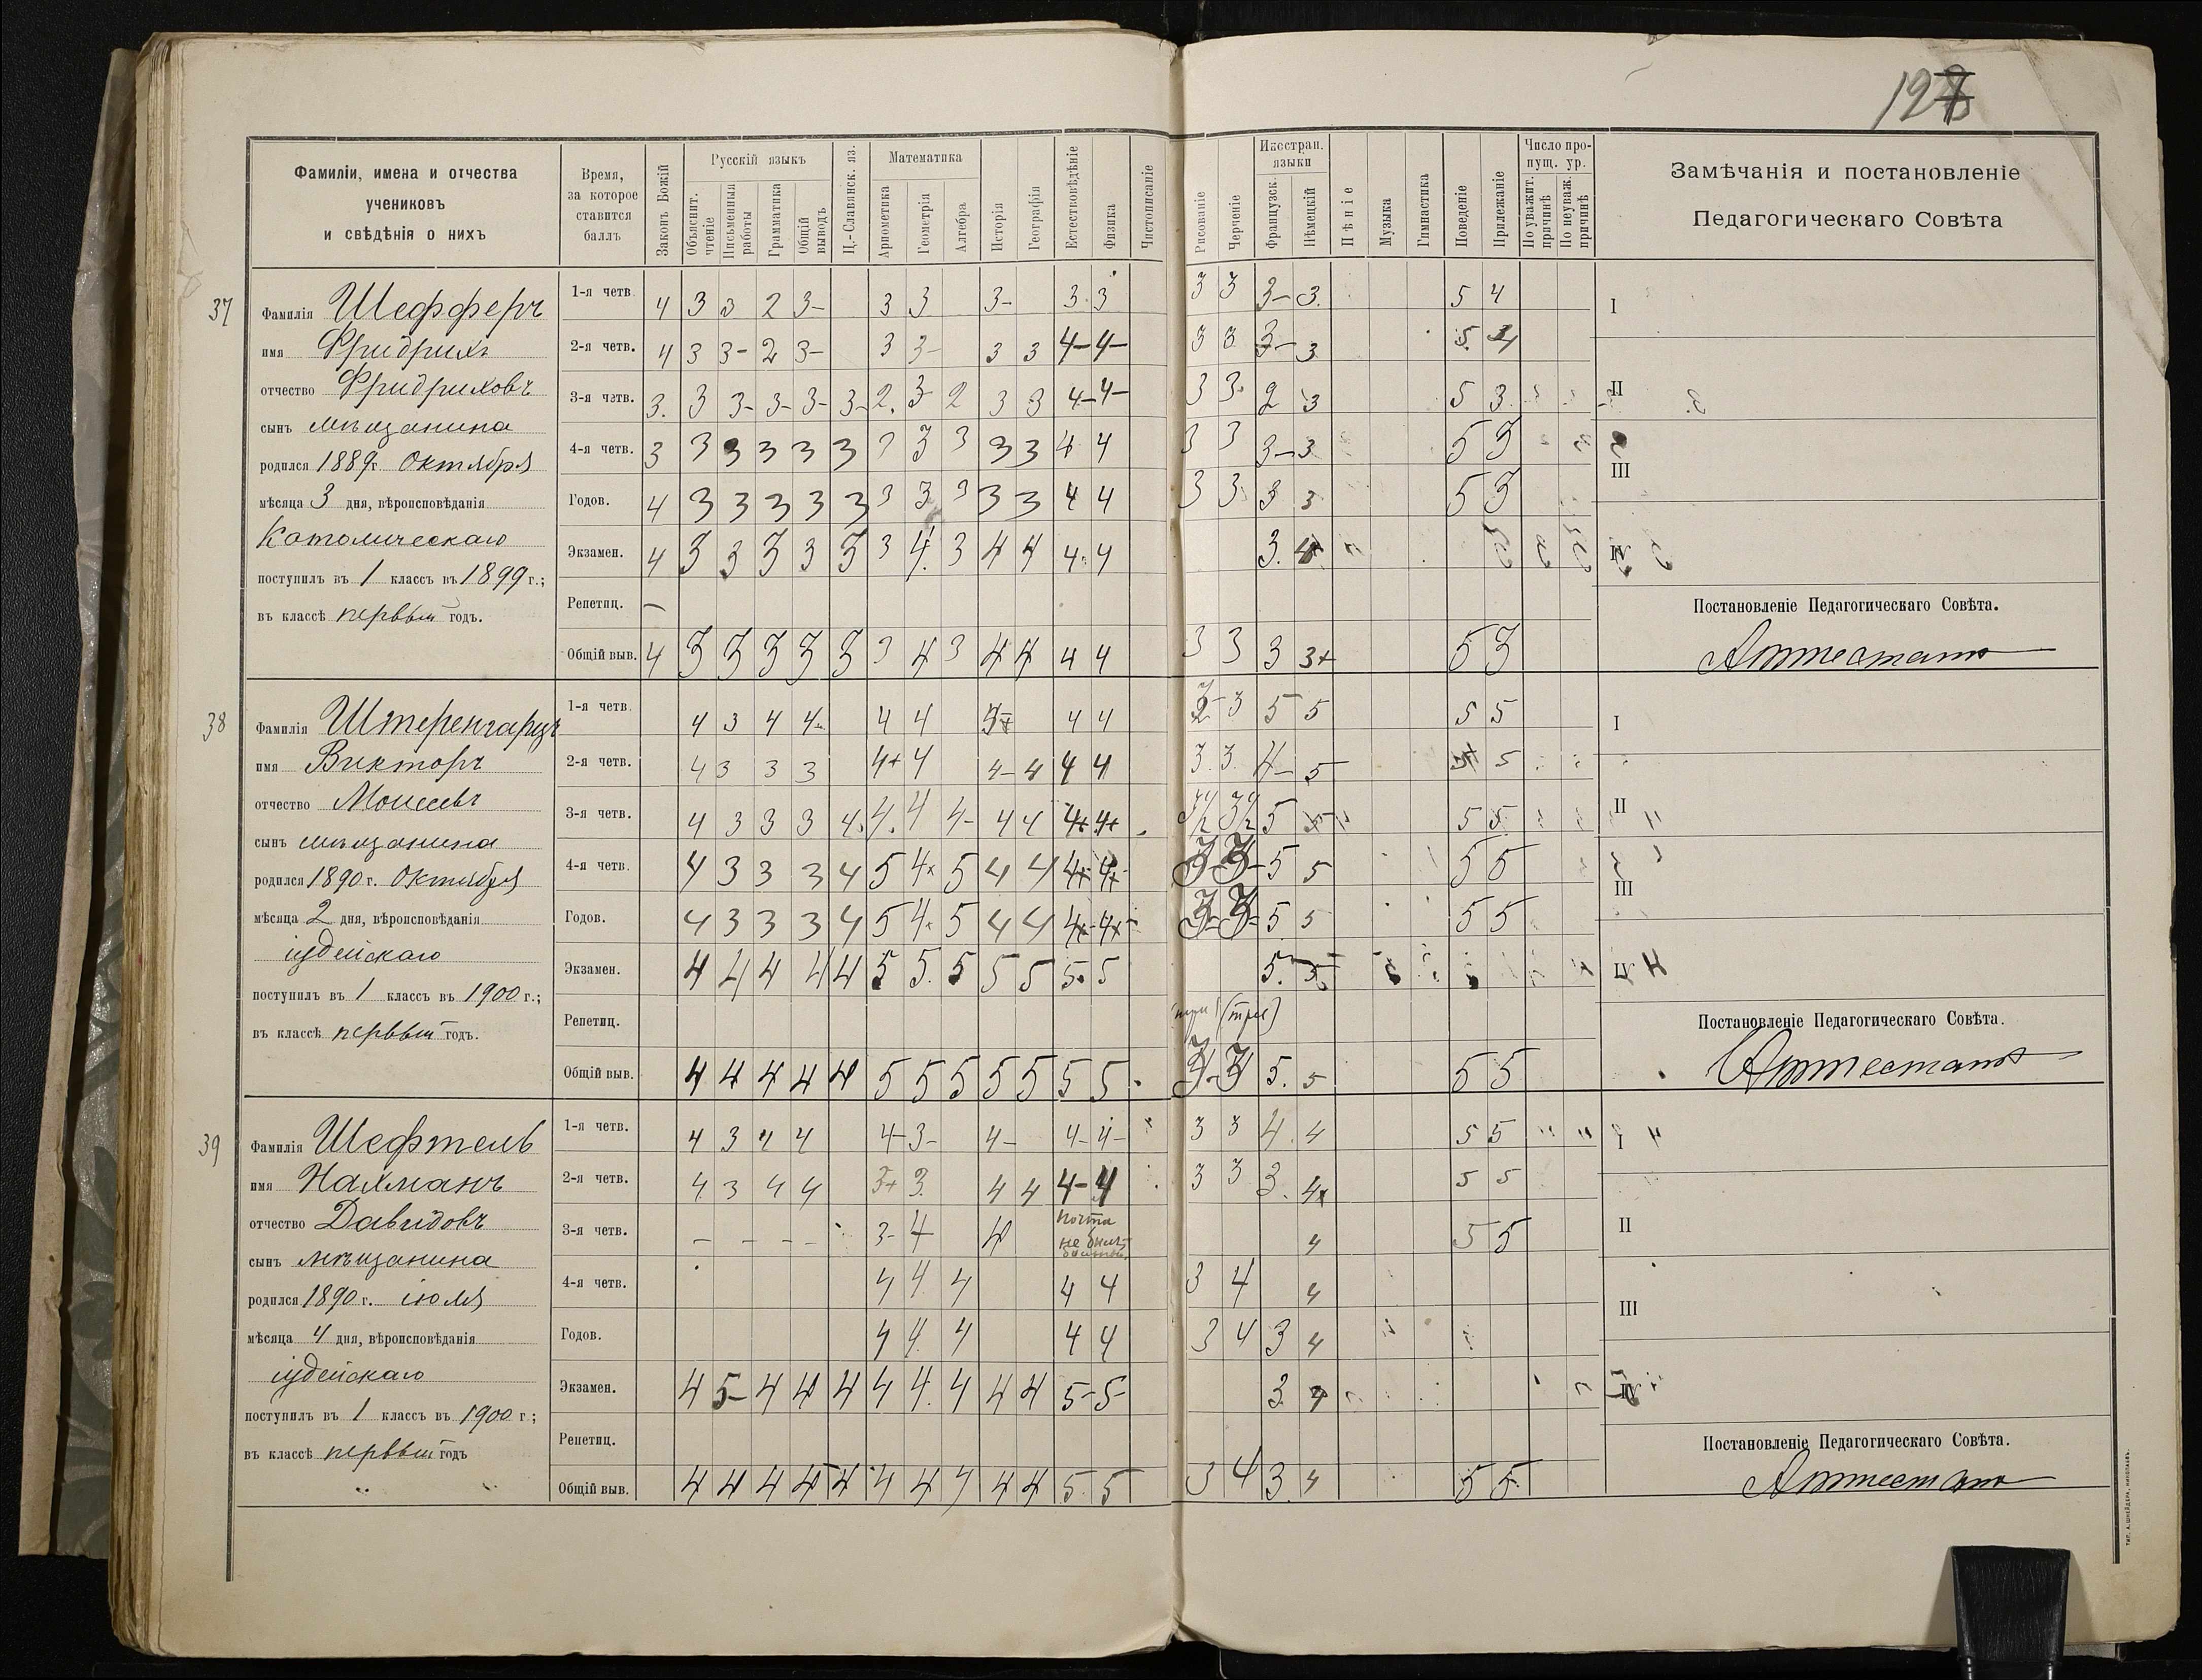 127
Фамиліи, имена и отчества
учениковъ
и свѣдѣнія о нихъ
Время,
за которое
ставится
баллъ
Законъ Божій
Русскій языкъ
Объяснит. чтеніе
Письменныя работы
Грамматика
Общій выводъ
Ц.-Славянск. яз.
Математика
Ариѳметика
Геометрія
Алгебра
Исторія
Географія
Естествовѣдѣніе
Физика
Чистописаніе
Рисованіе
Черченіе
Иностран. языки
Французск.
Нѣмецкій
Пѣніе
Музыка
Гимнастика
Поведеніе
Прилежаніе
Число пропущ. ур.
По уважит. причинѣ
По неуваж. причинѣ
Замѣчанія и постановленіе
Педагогическаго Совѣта
37
Фамилія Шефферъ
имя Фридрихъ
отчество Фридриховъ
сынъ мѣщанина
родился 1889 г. Октября
мѣсяца 3 дня, вѣроисповѣданія
Католическаго
поступилъ въ 1 классъ въ 1899 г.;
въ классѣ первый годъ.
1-я четв. 4 3 3 2 3- 3 3 3- 3 3 3 3 3- 3 5 4
2-я четв. 4 3 3- 2 3- 3 3- 3 3 4- 4- 3 3 3- 3 5
3-я четв. 3 3 3- 3- 3- 3- 2 3 2 3 3 4- 4- 3 3 2 3 5 3
4-я четв. 3 3 3 3 3 3 3 3 3 3 3 4 4 3 3 3- 3 5 3
Годов. 4 3 3 3 3 3 3 3 3 3 3 4 4 3 3 3 3 5 3
Экзамен. 4 3 3 3 3 3 3 4 3 4 4 4 4 3
Репетиц. —
Общій выв. 4 3 3 3 3 3 3 4 3 4 4 4 4 3 3 3 3+ 5 3
I
II
III
IV
Постановленіе Педагогическаго Совѣта.
Аттестатъ
38
Фамилія Штеренгарцъ
имя Викторъ
отчество Моисеевъ
сынъ мѣщанина
родился 1890 г. Октября
мѣсяца 2 дня, вѣроисповѣданія
іудейскаго
поступилъ въ 1 классъ въ 1900 г.;
въ классѣ первый годъ.
1-я четв. 4 3 4 4- 4 4 4 4 3 5 5 5 5
2-я четв. 4 3 3 3 4+ 4 4- 4 4 4 3 3 4- 5 5
3-я четв. 4 3 3 3 4 4 4 4- 4 4 4+ 4+ 3½ 3½ 5 5 5 5
4-я четв. 4 3 3 3 4 5 4+ 5 4 4 4+ 4+ 3 3 5 5 5 5
Годов. 4 3 3 3 4 5 4+ 5 4 4 4+ 4+ 3 3 5 5 5 5
Экзамен. 4 4 4 4 4 5 5 5 5 5 5 5 5 5
Репетиц. (три) (три)
Общій выв. 4 4 4 4 4 5 5 5 5 5 5 5 3 3 5 5 5 5
I
II
III
IV
Постановленіе Педагогическаго Совѣта.
Аттестатъ
39
Фамилія Шефтель
имя Нахманъ
отчество Давидовъ
сынъ мѣщанина
родился 1890 г. іюля
мѣсяца 4 дня, вѣроисповѣданія
іудейскаго
поступилъ въ 1 классъ въ 1900 г.;
въ классѣ первый годъ
1-я четв. 4 3 4 4 4- 3- 4- 4- 4- 3 3 4 4 5 5
2-я четв. 4 3 4 4 3+ 3 4 4 4- 4 3 3 3 4+ 5 5
3-я четв. — — — — 3- 4 4 почти не былъ 4 5 5
4-я четв. 4 4 4 4 4 3 4 4
Годов. 4 4 4 4 4 3 4 3 4
Экзамен. 4 5- 4 4 4 4 4 4 4 4 5- 5- 3 4
Репетиц.
Общій выв. 4 4 4 4 4 4 4 4 4 4 5 5 3 4 3 4 5 5
I
II
III
IV
Постановленіе Педагогическаго Совѣта.
Аттестатъ
ТИП. А. ШНЕЙДЕРА, НИКОЛАЕВЪ.